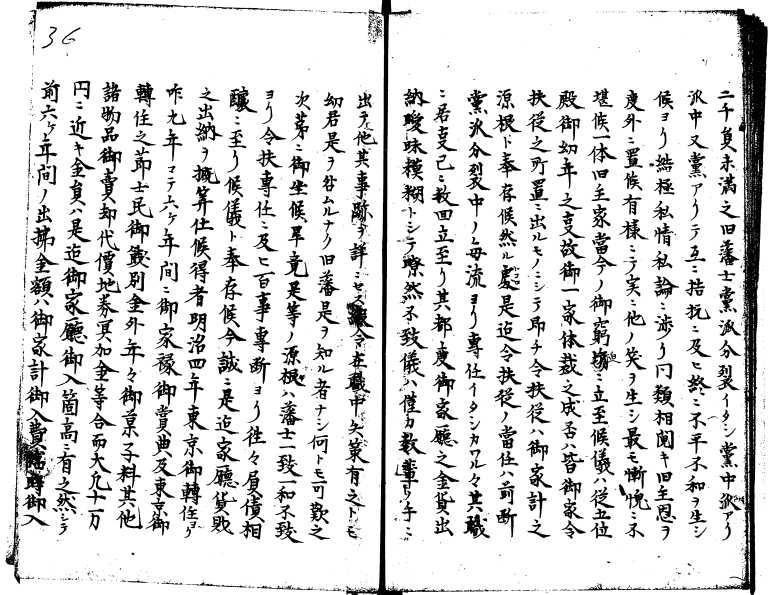 二千負未満之旧藩士黨派分裂イタシ黨中派アリ
派中又黨アリテ互ニ拮抗ニ及ヒ終ニ不平不和ヲ生シ
候ヨリ結極私情私論ニ渉リ同類相鬩キ旧主恩ヲ
度外ニ置候有様ニテ実ニ他ノ笑ヲ生シ最モ慚愧ニ不
堪候一体旧主家當今ノ御窮ニ立至候儀ハ従五位
殿御幼年之故御一家体裁之成否ハ皆御家令
扶従之所置ニ出ルモノニシテ即チ令扶従ハ御家計之
源根ト奉存候然ル處是迄令扶従ノ當任ハ前断
黨派分裂中ノ毎流ヨリ專任イタシカワル々其職
ニ居已ニ数回立至リ其都度御家廳之金貨出
納曖昧模糊トシテ瞭然不致儀ハ僅カ数輩ノ手ニ
出テ他其事跡ヲ詳ニセス令在職中失策有之トモ
幼君是ヲ咎ムルナク旧藩是ヲ知ル者ナシ何トモ可歎之
次第ニ御坐候畢竟是等ノ源根ハ藩士一致一和不致
ヨリ令扶專任ニ及ヒ百事專断ヨリ往々負債相
醸ニ至リ候儀ト奉存候今誠ニ是迄家廳貨敗
之出納ヲ概算仕候得者明治四年東京御轉住ヨリ
昨九年マテ六ケ年間ニ御家禄御賞典及東京御
轉住之節士民御餞別金外年々御菓子料其他
諸物品御賣却代價地券冥加金等合而大凡十一万
円ニ近キ金負ハ是迄御家廳御入箇高ニ有之然シテ
前六ケ年間ノ出拂金額ハ御家計御入費臨時御入
36